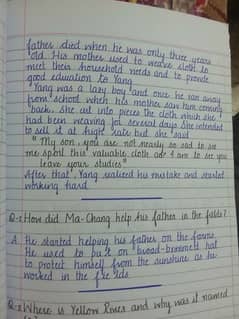 father died when he was only three years
old. His mother used to weave cloth to
meet their household needs and to provide
good education to Yang.
Yang was a lazy boy and once he ran away
from school when his mother saw him coming
back, she cut into pieces the cloth which she
had been weaving for several days. She intended
to sell it at high rate but she said
"My son, you are not nearly so sad to see
me spoil this valuable cloth as I am to see you
leave your studies"
After that, Yang realized his mistake and started
working hard.
Q-1 How did Ma-Chang help his father in the fields?
A. He started helping his father on the farms.
He used to put on broad-brimmed hat
to protect himself from the sunshine as he
worked in the fields.
Q-2 Where is Yellow River and why was it named